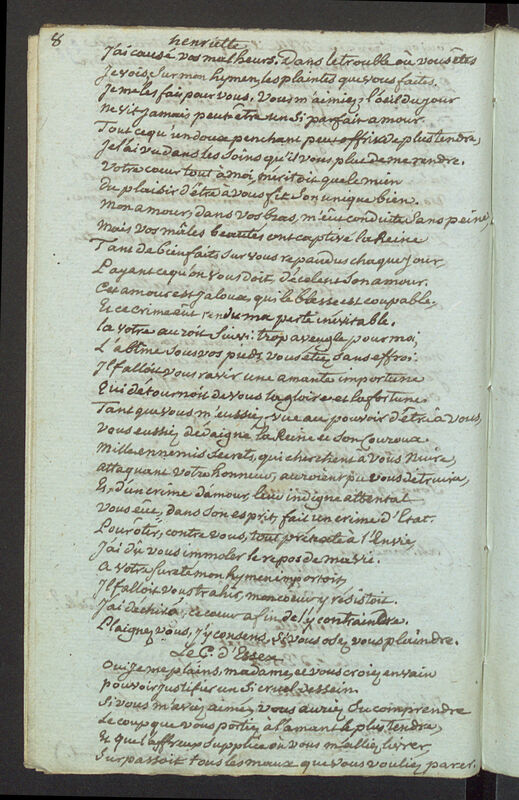 8
henriette
J'ai causé vos malheurs. Dans le trouble où vous êtes
Je vois, Sur mon hymen, les plaintes que vous faites.
Je me les fais pour vous. Vous m'aimiez, l'oeil du jour
Ne vit jamais peut être un si parfait amour.
Tout ce qu'un doux penchant peut offrir de plus tendre,
Je l'ai vu dans les Soins qu'il vous plut de me rendre.
Votre coeur tout à moi, meritoit que le mien
Du plaisir d'être à vous fit Son unique bien.
Mon amour, dans vos bras, m'eut conduite Sans peine,
Mais vos mâles beautés ont captivé la Reine
Tant de bienfaits Sur vous repandus chaque jour,
Payant ce qu'on vous doit, décelent Son amour.
Cet amour est jaloux, qui le blesse est coupable,
Et ce crime eut rendu ma perte inévitable.
La votre auroit Suivi. trop aveugle pour moi,
L'abîme Sous vos pieds, vous étiez Sans effroi.
Il falloit vous ravir une amante importune
Qui détournoit de vous la gloire et la fortune.
Tant que vous m'eussiez vue au pouvoir d'être à vous,
Vous eussiez dédaigné la Reine et Son Couroux
Mille ennemis Secrets, qui cherchent à vous Nuire,
attaquant votre honneur, auroient pu vous détruire,
Et, d'un crime d'amour, leur indigne attentat
Vous eût, dans Son esprit, fait un crime d'Etat.
Pour ôter, contre vous, tout prétexte à l'Envie,
J'ai dû vous immoler le repos de ma vie.
A votre Sureté mon hymen importoit,
Il falloit vous trahir, mon coeur y résistoit.
J'ai déchiré, ce coeur afin de l'y contraindre.
Plaignez vous, j'y consens, Si vous osez vous plaindre.
Le C. d'Essex
Oui je me plains, madame, et vous croiez en vain
pouvoir justifier un Si cruel dessein.
Si vous m'aviez aimé, vous auriez Su comprendre
Le coup que vous portiez à l'amant le plus tendre,
Et que l'affreux Supplice où vous m'alliez livrer,
Surpassoit tous les maux que vous vouliez parer.